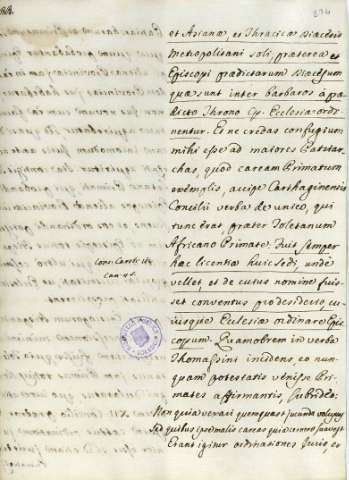 274
et Asianæ, et Thraciæ Diæcesis
metropolitani soli, præterea et
Episcopi prædictarum Diæcesum
quæ sunt inter barbaros à præ
dicto Throno Cp. Ecclesiæ ordi
nentur. Et ne credas confugium
mihi esse ad maiores Patriar
chas, quod caream Primatum
exemplis, accipe Carthaginensis
Concilii verba de unico, qui
tunc erat, præter Toletanum
Africano Primate. Fuit semper
hæc licentia huic sedi, unde
vellet, et de cuius nomine fuis
set conventus pro desiderio cu
iusque Ecclesiæ ordinare Epis
copum. Quamobrem in verba
Thomassini incidens eo nun
quam potestatis venisse Pri
mates affirmantis, subrideo:
Non quia vexari quemquam est jucunda voluptas
Sed quibus ipse malis careas quia cernere suave est
Erant igitur ordinationes Juris, et
Conc. Carth. III.
Can. 45.